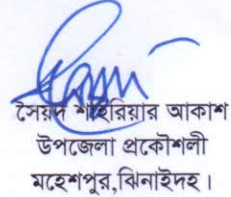 সৈয়দ শাহরিয়ার আকাশ
উপজেলা প্রকৌশলী
মহেশপুর,ঝিনাইদহ।